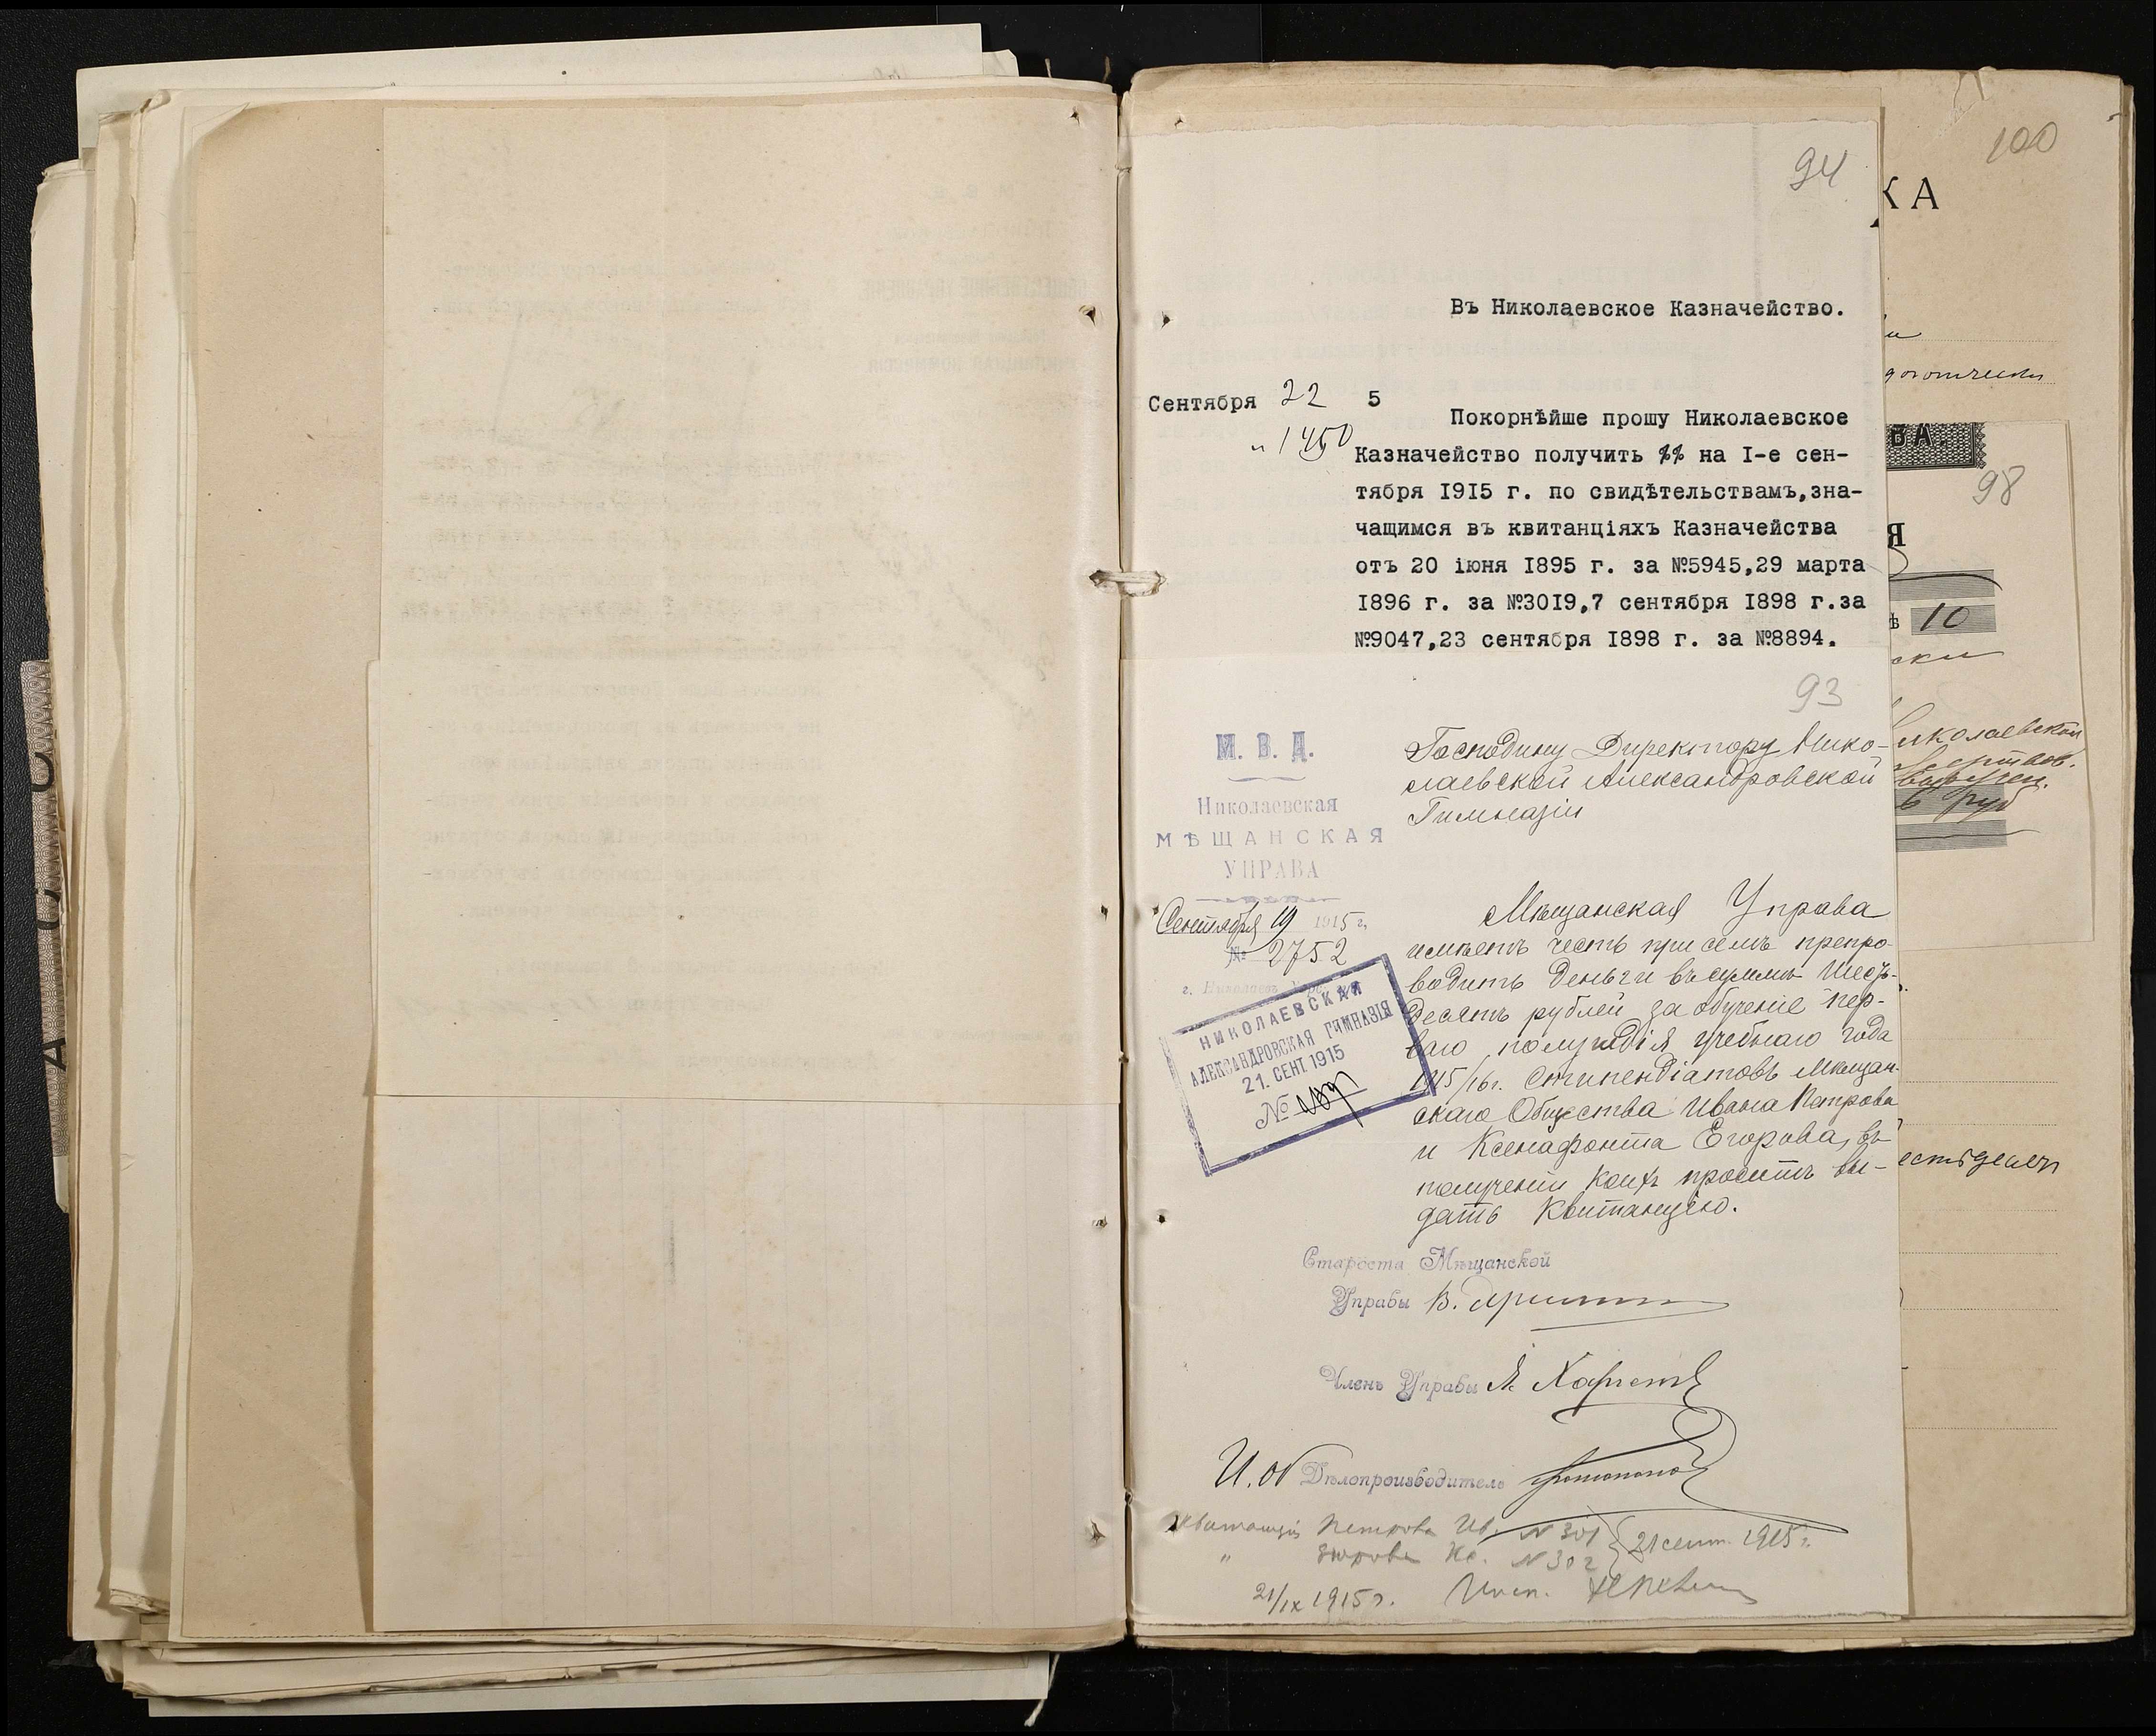 94
Въ Николаевское Казначейство.
Сентября 22 5
№ 1450
Покорнѣйше прошу Николаевское
Казначейство получить %% на I-е сен-
тября I9I5 г. по свидѣтельствамъ,зна-
чащимся въ квитанціяхъ Казначейства
отъ 20 іюня I895 г. за №5945,29 марта
I896 г. за №30I9,7 сентября I898 г.за
№9047,23 сентября I898 г. за №8894.
93
М. В. Д.
Николаевская
МѢЩАНСКАЯ
УПРАВА
Сентября 19 1915 г.
№ 2752
г. Николаевъ
Господину Директору Нико-
лаевской Александровской
Гимназіи
Мѣщанская Управа
имѣетъ честь при семъ препро-
водить деньги въ суммѣ шесть-
десятъ рублей за обученіе пер-
ваго полугодія учебнаго года
1915/16 г. стипендіатовъ Мѣщан-
скаго Общества Ивана Петрова
и Ксенафонта Егорова, въ
полученіи коихъ проситъ вы-
дать квитанцію.
НИКОЛАЕВСКАЯ
АЛЕКСАНДРОВСКАЯ ГИМНАЗІЯ
21. СЕНТ 1915
№
Староста Мѣщанской
Управы В.
Членъ Управы
И. об Дѣлопроизводитель
Квитанціи Петрова Ив. № 301
" Егорова Кс. № 302
21 сент. 1915 г.
21/IX 1915 г. Инсп.
100
КА
98
Я
10
ски
Николаевской